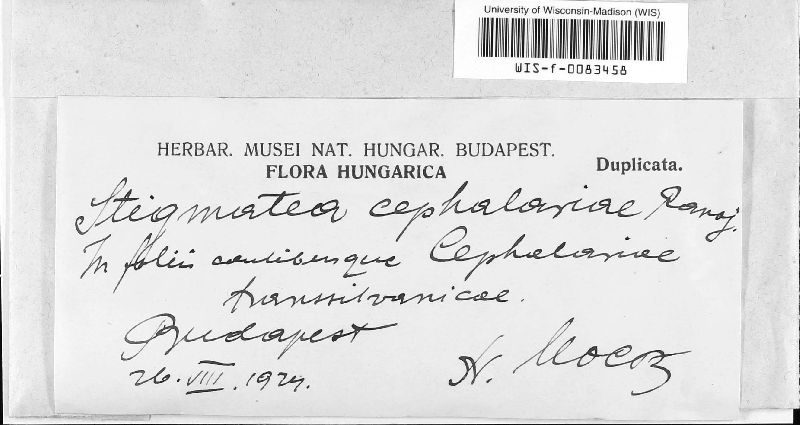 University of Wisconsin-Madison (WIS)
WIS-f-0083458
HERBAR. MUSEI NAT. HUNGAR. BUDAPEST.
FLORA HUNGARICA
Duplicata.
Stigmatea cephalariae Ranoj.
In foliis caulibusque Cephalariae
transsilvanicae.
Budapest
26. VIII. 1927.